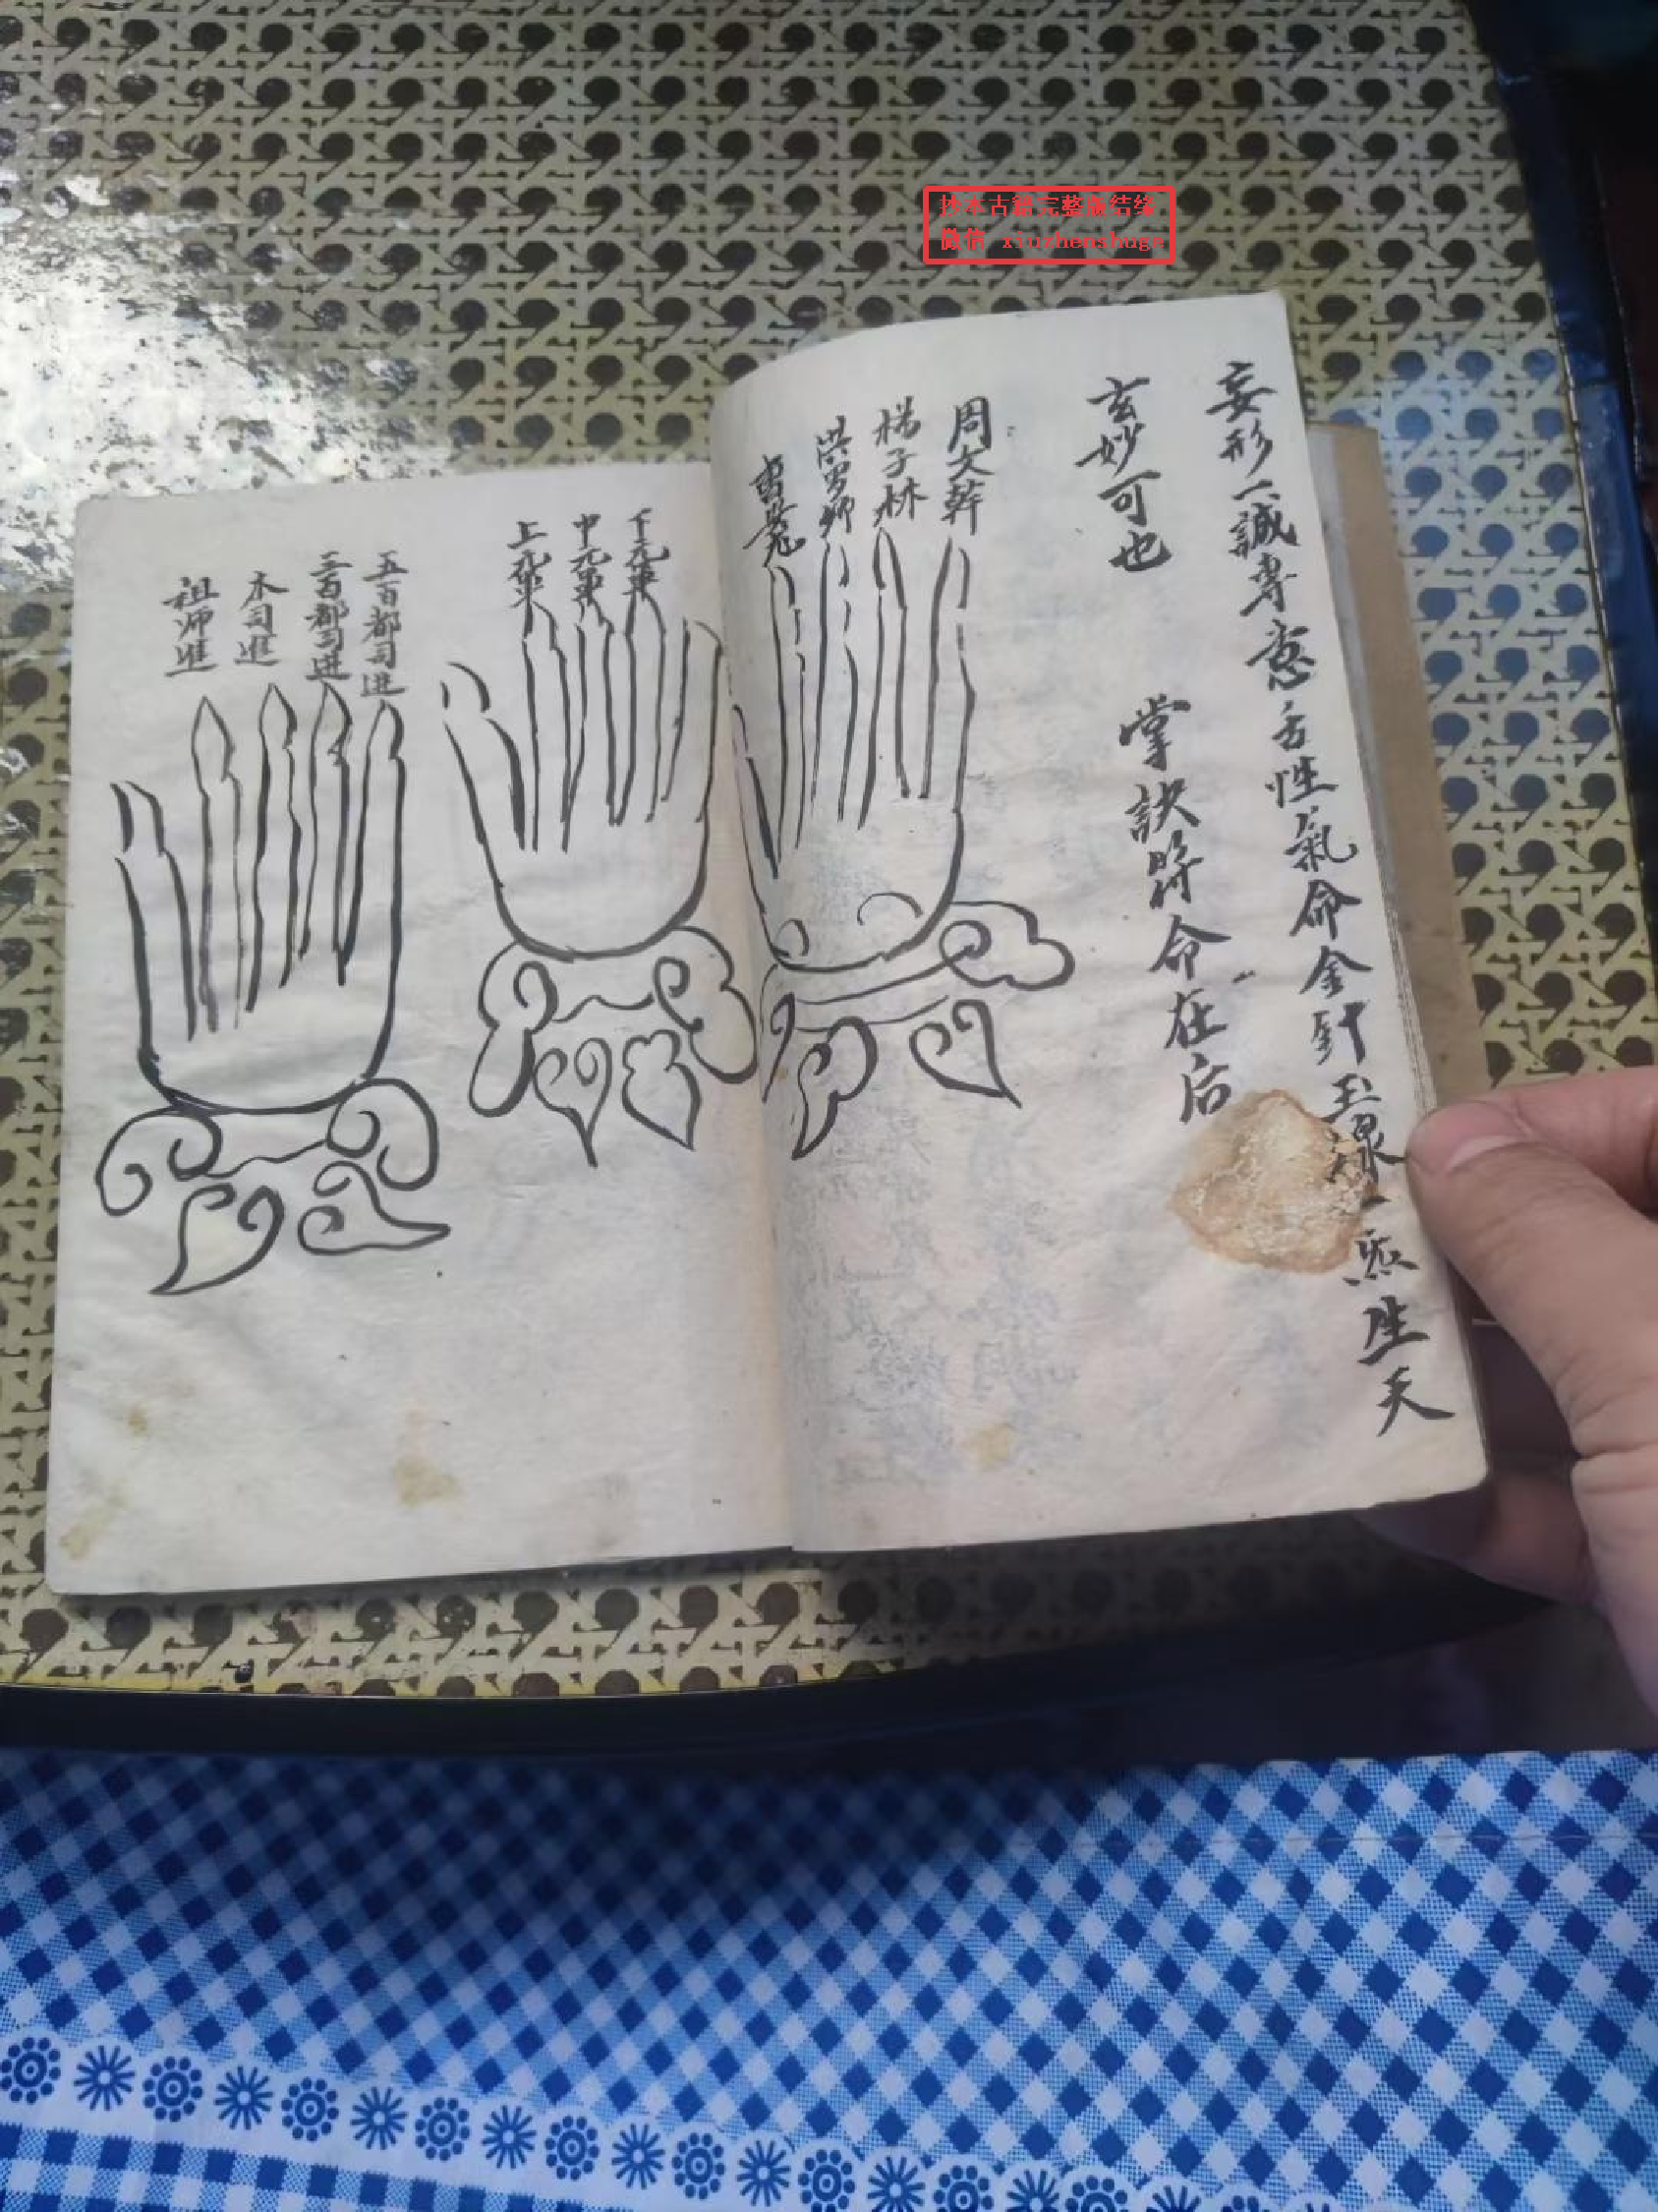 抄本古籍完整版结缘
微信 xiuzhenshuge
妄形一誠專意舌性氣命金針玉線一炁生天
玄妙可也
掌訣將命在后
周文幹
楊子林
下元軍
中元軍
上元軍
五百都司进
三百都司进
本司進
祖师進